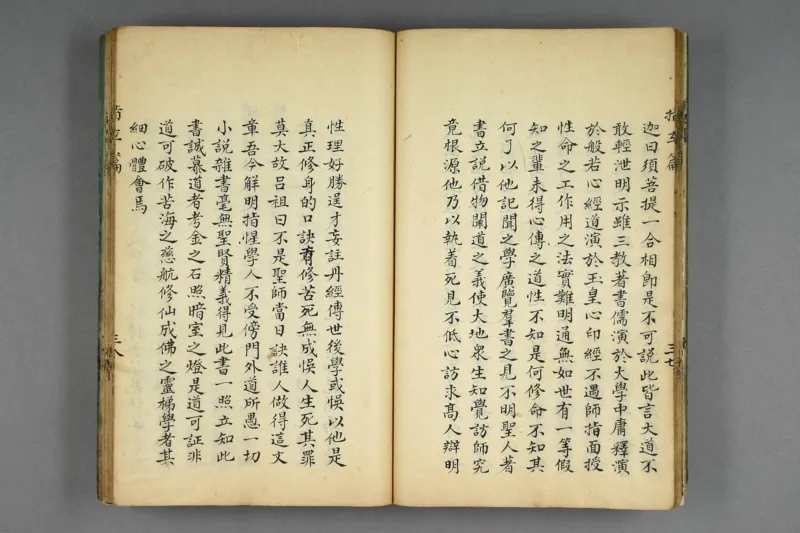 迦曰須菩提一合相即是不可説此皆言大道不
敢輕泄明示雖三教著書儒演於大學中庸釋演
於般若心經道演於玉皇心印經不遇師指面授
性命之工作用之法實難明通無如世有一等假
知之輩未得心傳之道性不知是何修命不知其
何了以他記聞之學廣覽羣書之見不明聖人著
書立説借物闡道之義使大地衆生知覺訪師究
竟根源他乃以執着死見不低心訪求髙人辯明
三七
性理好勝逞才妄註丹經傳世後學或悞以他是
真正修身的口訣有修苦死無成悞人生死其罪
莫大故呂祖曰不是聖師當日訣誰人做得這文
章吾今解明指惺學人不受傍門外道所愚一切
小説雜書毫無聖賢精義得見此書一照立知此
書誠慕道者考金之石照暗室之燈是道可証非
道可破作苦海之慈航修仙成佛之靈梯學者其
細心體會焉
三八